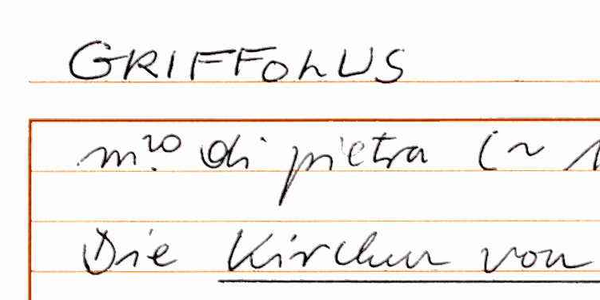 GRIFFOLUS
m.ro di pietra (~ 1
Die Kirchen von